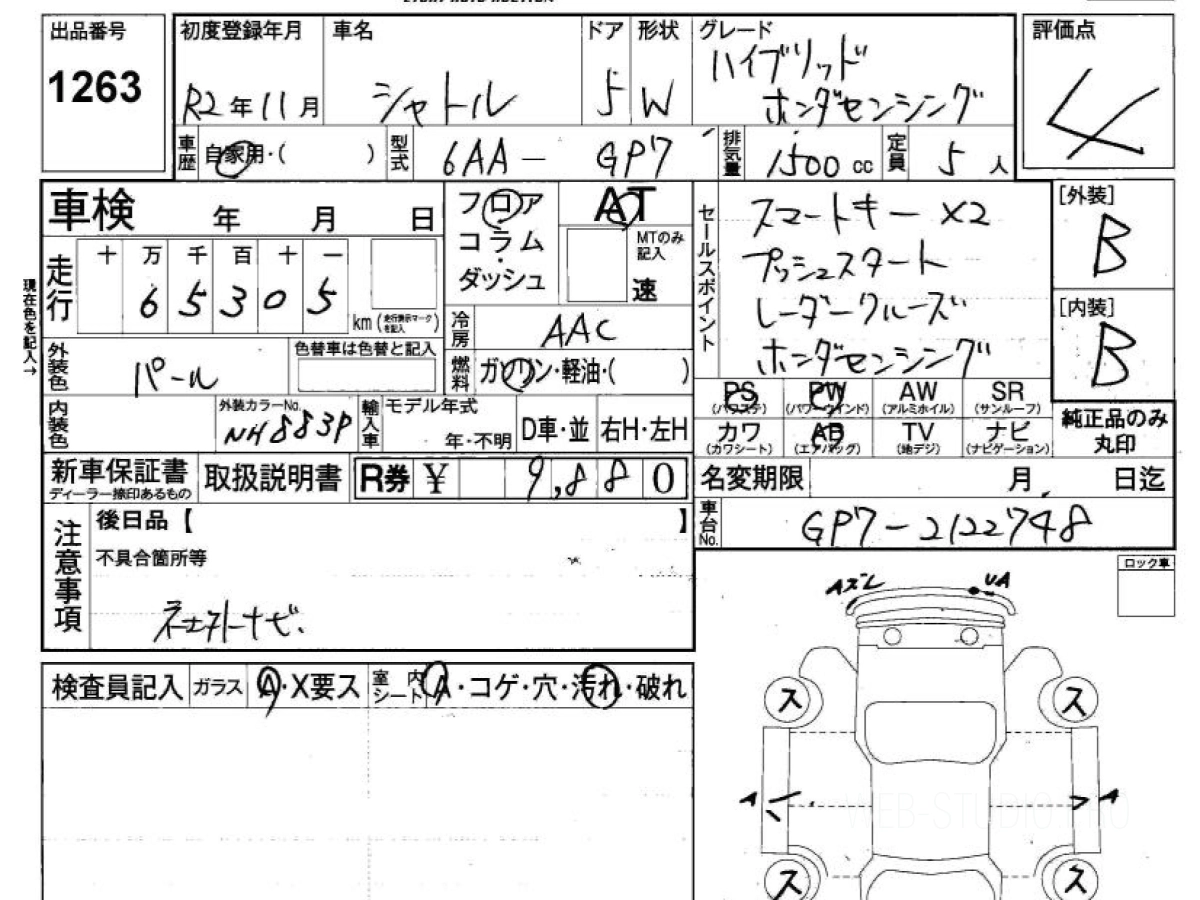 出品番号
1263
初度登録年月
R2年11月
車名
シャトル
ドア
5
形状
W
グレード
ハイブリッド
ホンダセンシング
評価点
4
車歴
自家用・( )
型式
6AA－GP7
排気量
1500 cc
定員
5人
車検 年 月 日
フロア
コラム
・
ダッシュ
AT
MTのみ
記入
速
セールスポイント
スマートキー ×2
プッシュスタート
レーダークルーズ
ホンダセンシング
[外装]
B
[内装]
B
現在色を記入→
走行
十 万 千 百 十 一
6 5 3 0 5
km (走行表示マークを記入)
冷房
AAC
燃料
ガソリン・軽油・( )
外装色
パール
色替車は色替と記入
内装色
外装カラーNo.
NH883P
輸入車
モデル年式
年・不明
D車・並
右H・左H
PS
(パワステ)
PW
(パワーウインド)
AW
(アルミホイル)
SR
(サンルーフ)
カワ
(カワシート)
AB
(エアバッグ)
TV
(地デジ)
ナビ
(ナビゲーション)
純正品のみ
丸印
新車保証書
ディーラー捺印あるもの
取扱説明書
R券 ¥ 9,880
名変期限 月 日迄
車台No.
GP7-2122748
注意事項
後日品【 】
不具合箇所等
ネエ外ナビ.
ロック車
Aズレ
UA
検査員記入
ガラス
A・X要ス
室内
シート
A・コゲ・穴・汚れ・破れ
ス
ス
A
A
ス
ス
WEB-STUDIO.PRO